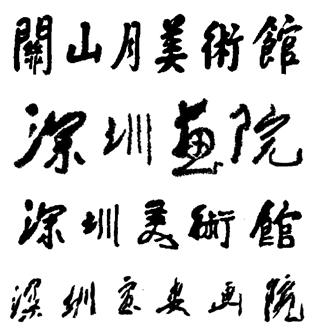 關山月美術館
深圳畫院
深圳美術館
深圳宝安画院